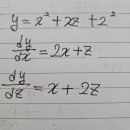 y = x² + xz + z²
dy/dx = 2x + z
dy/dz = x + 2z